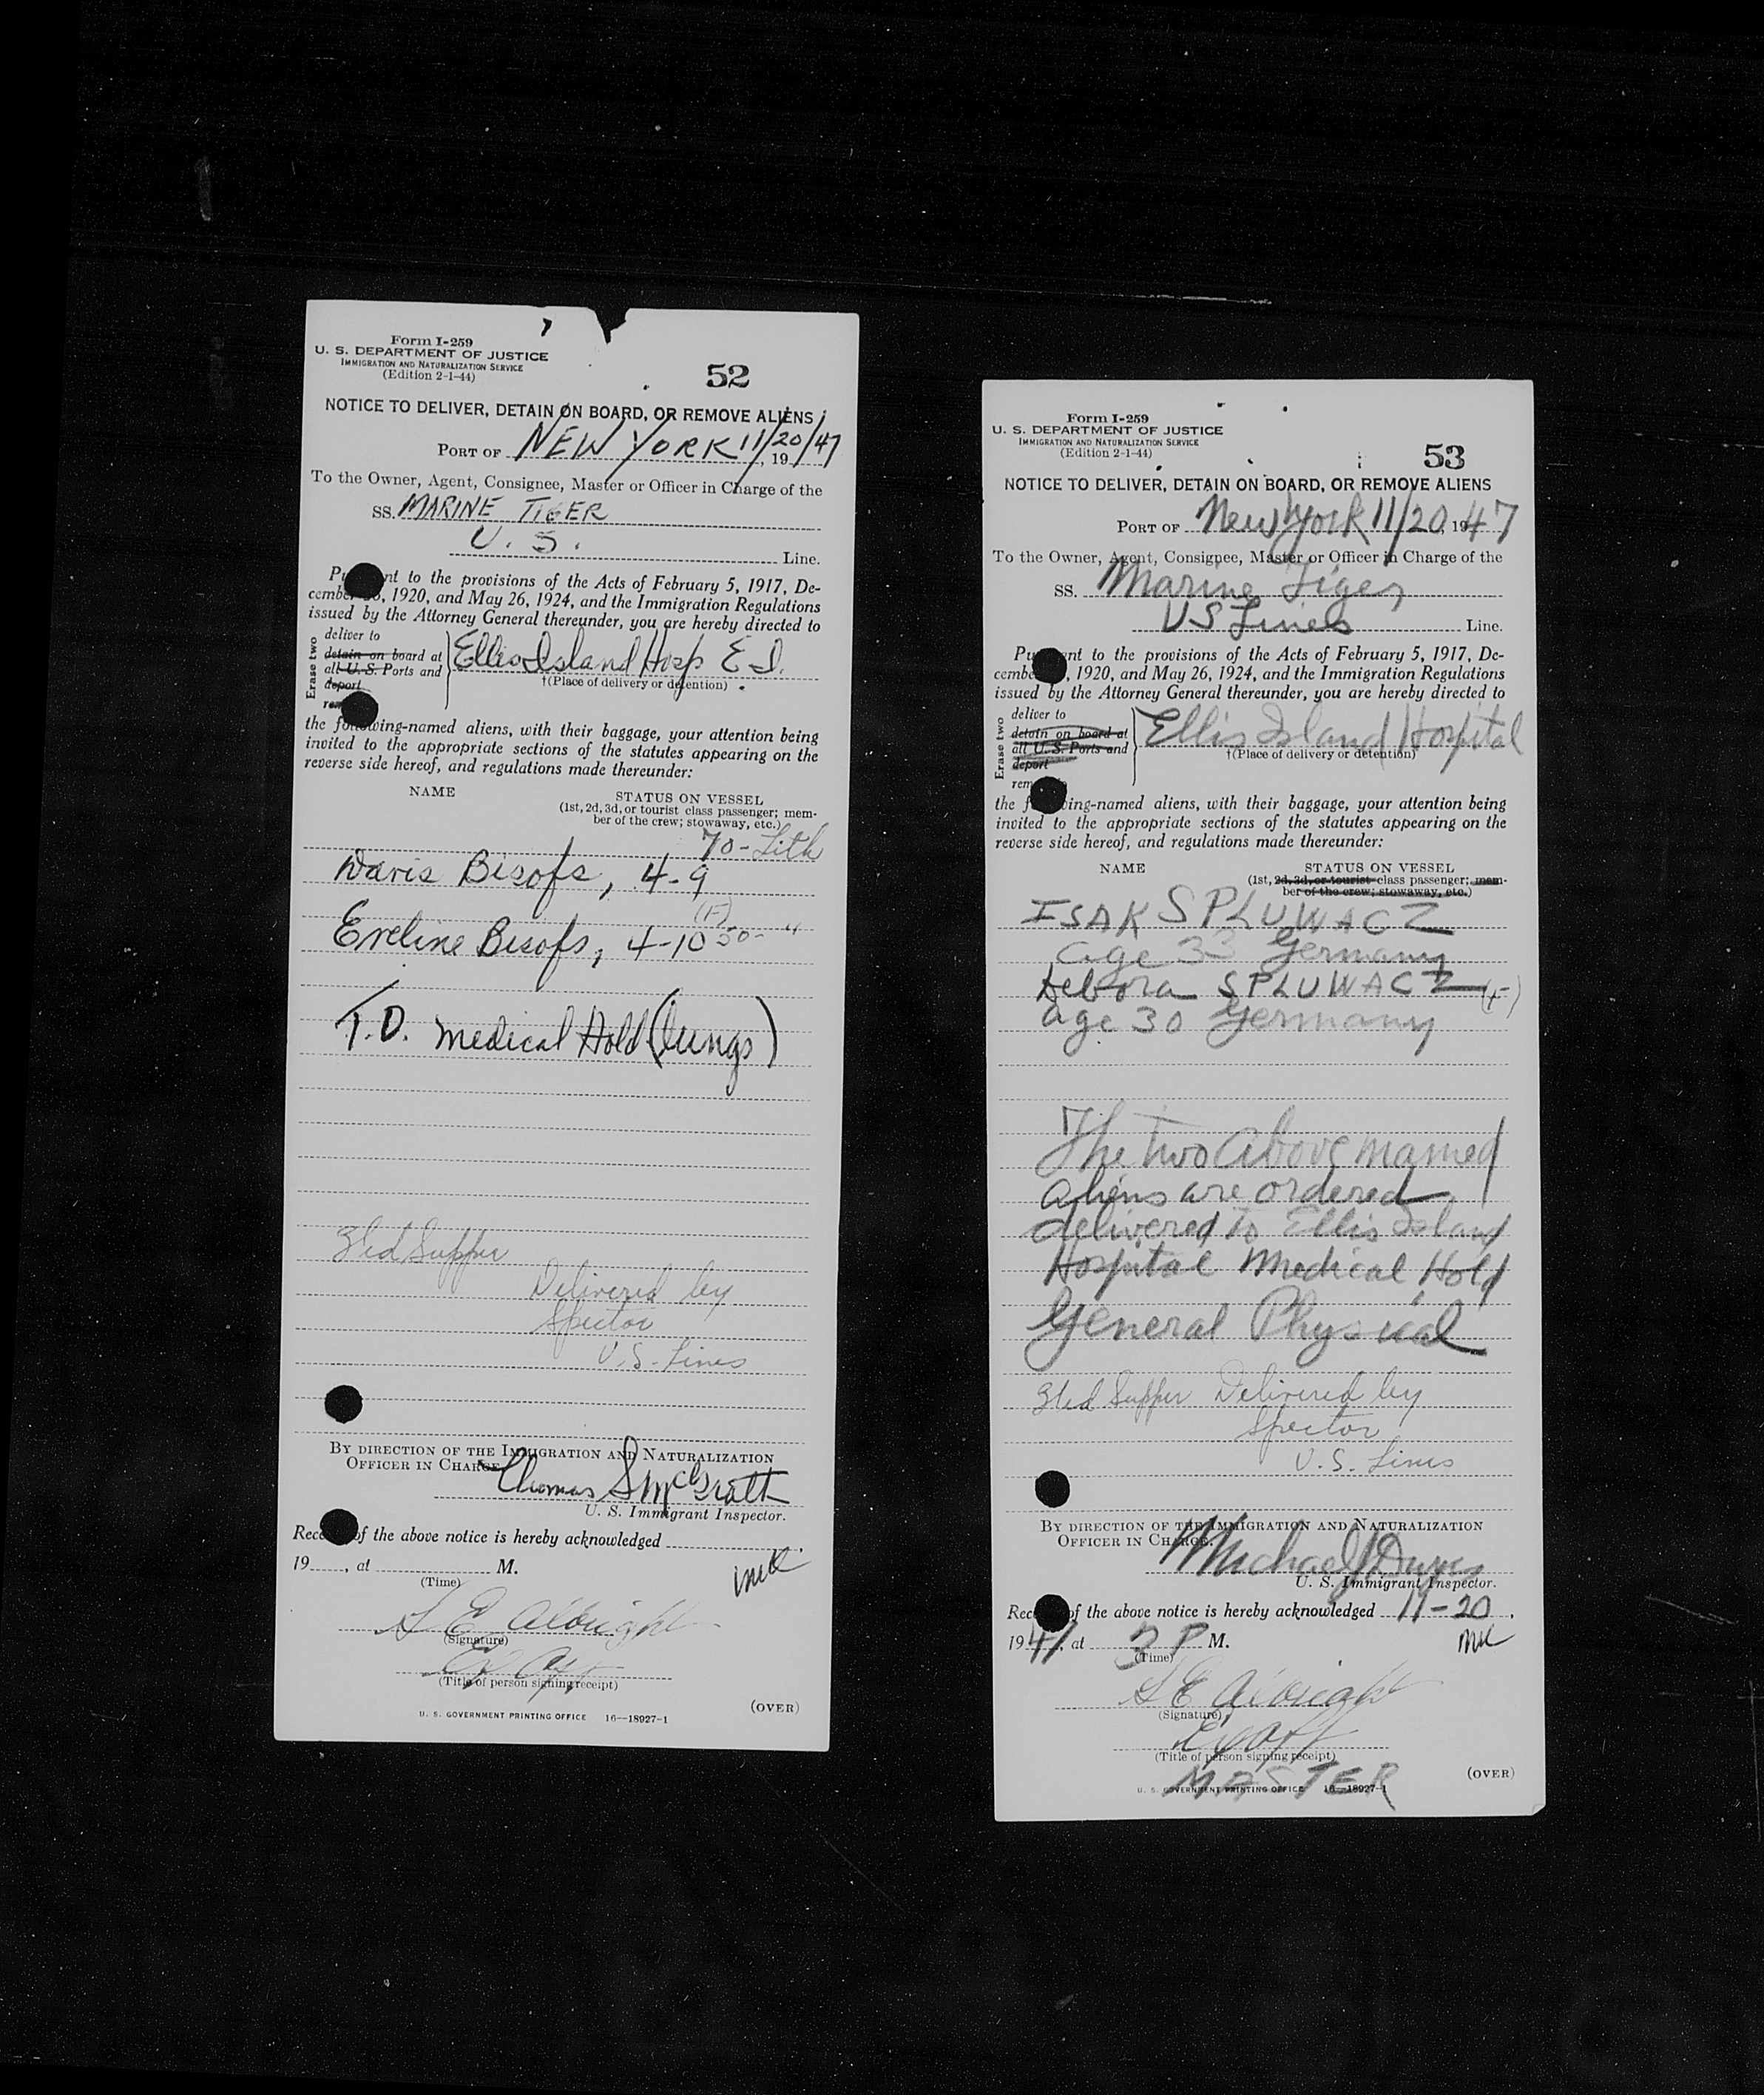 Form I-259
U. S. DEPARTMENT OF JUSTICE
IMMIGRATION AND NATURALIZATION SERVICE
(Edition 2-1-44)
52
NOTICE TO DELIVER, DETAIN ON BOARD, OR REMOVE ALIENS
PORT OF NEW YORK 11/20/47, 19
To the Owner, Agent, Consignee, Master or Officer in Charge of the
SS. MARINE TIGER
U. S. Line.
nt to the provisions of the Acts of February 5, 1917, De-
cembe , 1920, and May 26, 1924, and the Immigration Regulations
issued by the Attorney General thereunder, you are hereby directed to
Erase two
deliver to
detain on board at
all U. S. Ports and
deport
Ellis Island Hosp E I.
†(Place of delivery or detention)
the following-named aliens, with their baggage, your attention being
invited to the appropriate sections of the statutes appearing on the
reverse side hereof, and regulations made thereunder:
NAME STATUS ON VESSEL
(1st, 2d, 3d, or tourist class passenger; mem-
ber of the crew; stowaway, etc.)
70 - Lith
Davis Bisofs, 4-9
(F)
Eveline Bisofs, 4-10 50 - "
T.D. Medical Hold (lungs)
Supper
Delivered by
Spector
U.S. Lines
BY DIRECTION OF THE IMMIGRATION AND NATURALIZATION
OFFICER IN CHARGE
Thomas S McGrath
U. S. Immigrant Inspector.
Rece of the above notice is hereby acknowledged
19 , at M.
(Time)
S E Albright
(Signature)
(Title of person signing receipt)
(OVER)
U. S. GOVERNMENT PRINTING OFFICE 16—18927-1
Form I-259
U. S. DEPARTMENT OF JUSTICE
IMMIGRATION AND NATURALIZATION SERVICE
(Edition 2-1-44)
53
NOTICE TO DELIVER, DETAIN ON BOARD, OR REMOVE ALIENS
PORT OF New York 11/20, 1947
To the Owner, Agent, Consignee, Master or Officer in Charge of the
SS. Marine Tiger
US Lines Line.
Pu ant to the provisions of the Acts of February 5, 1917, De-
cembe , 1920, and May 26, 1924, and the Immigration Regulations
issued by the Attorney General thereunder, you are hereby directed to
Erase two
deliver to
detain on board at
all U. S. Ports and
deport
rem
Ellis Island Hospital
†(Place of delivery or detention)
the f wing-named aliens, with their baggage, your attention being
invited to the appropriate sections of the statutes appearing on the
reverse side hereof, and regulations made thereunder:
NAME STATUS ON VESSEL
(1st, 2d, 3d, or tourist class passenger; mem-
ber of the crew; stowaway, etc.)
ISAK SPLUWACZ
age 33 Germany
Debora SPLUWACZ (F)
age 30 Germany
The two above named
aliens are ordered
delivered to Ellis Island
Hospital Medical Hold
General Physical
Supper Delivered by
Spector
U.S. Lines
BY DIRECTION OF THE IMMIGRATION AND NATURALIZATION
OFFICER IN CHARGE.
Michael J
U. S. Immigrant Inspector.
Rec of the above notice is hereby acknowledged 11-20,
1947, at 3 P M.
(Time)
S E Albright
(Signature)
(Title of person signing receipt)
MASTER
(OVER)
U. S. GOVERNMENT PRINTING OFFICE 16—18927-1